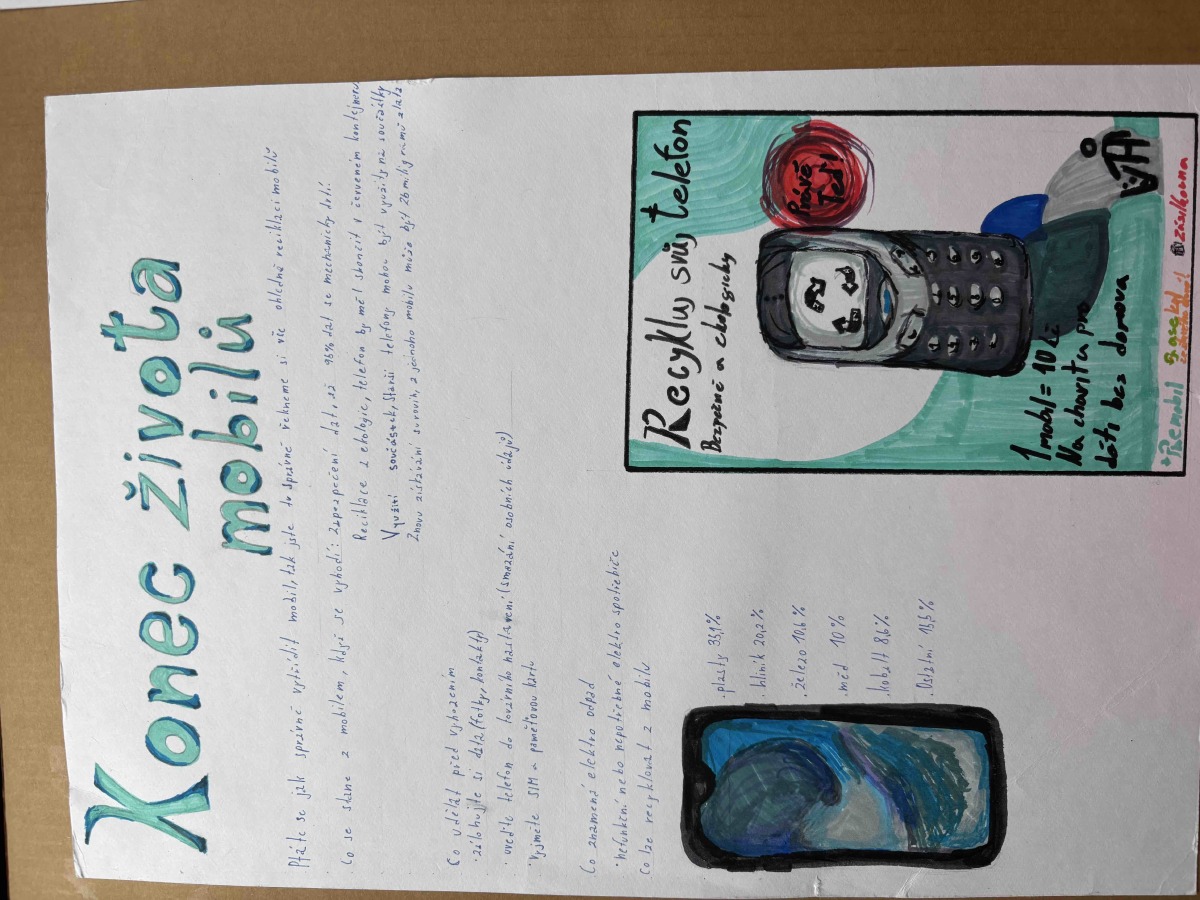 Konec života
mobilů
Ptáte se jak správně vytřídit mobil, tak jste tu správně řekneme si vše ohledně reciklaci mobilů
Co se stane z mobilem, když se vyhodí: zapezpečení dat, až 96% dat se mechanicky
Reciklace z ekologie, telefon by měl skončit v červeném kontejneru
Využití součástek, starší telefony mohou být využity na součástky
Znovu získávání surovin, z jednoho mobilu může být 26 miligramů zlata
Co udělat před vyhozením
· zálohujte si data (fotky, kontakty)
· uveďte telefon do továrního nastavení (smazání osobních údajů)
· vyjměte SIM a paměťovou kartu
Co znamená elektro odpad
· nefunkční nebo nepotřebné elektro spotřebiče
Co lze recyklovat z mobilu
· plasty 35,1%
· hliník 20,2%
· železo 10,6%
· měd 10%
· kobalt 8,6%
· Ostatní 15,5%
Recykluj svůj telefon
Bezpečně a ekologicky
Právě
Teď!
1 mobil = 10 kč
Na charitu pro
děti bez domova
Remobil
zásilkovna